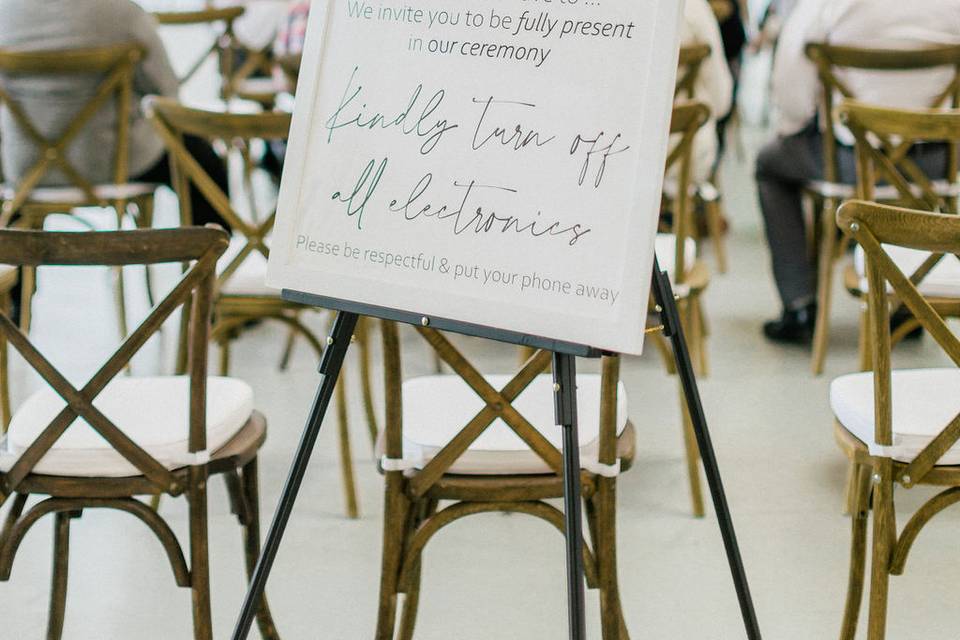 We invite you to be fully present
in our ceremony
Kindly turn off
all electronics
Please be respectful & put your phone away